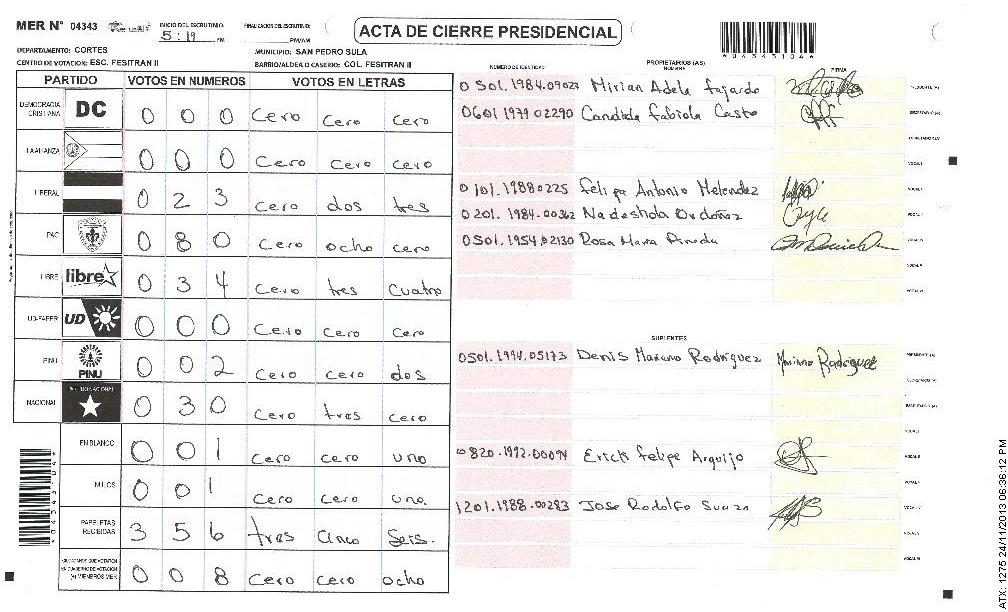 MER N° 04343
INICIO DEL ESCRUTINIO:
5:19 PM
FINALIZACION DEL ESCRUTINIO:
PM/AM
ACTA DE CIERRE PRESIDENCIAL
*04343104*
DEPARTAMENTO: CORTES
MUNICIPIO: SAN PEDRO SULA
CENTRO DE VOTACION: ESC. FESITRAN II
BARRIO/ALDEA O CASERIO: COL. FESITRAN II
PARTIDO VOTOS EN NUMEROS VOTOS EN LETRAS
DEMOCRACIA CRISTIANA DC 0 0 0 Cero Cero Cero
LA ALIANZA 0 0 0 Cero Cero Cero
LIBERAL 0 2 3 Cero dos tres
PAC 0 8 0 Cero ocho cero
LIBRE libre 0 3 4 Cero tres Cuatro
UD-FAPER UD 0 0 0 Cero Cero Cero
PINU PINU 0 0 2 Cero Cero dos
NACIONAL 0 3 0 Cero tres cero
EN BLANCO 0 0 1 Cero cero uno
NULOS 0 0 1 Cero Cero uno.
PAPELETAS RECIBIDAS 3 5 6 tres Cinco Seis.
CIUDADANOS QUE VOTARON EN CUADERNO DE VOTACION (+) MIEMBROS MER 0 0 8 Cero cero ocho
NUMERO DE IDENTIDAD PROPIETARIOS (AS) NOMBRE FIRMA
Mirian Adela Fajardo PRESIDENTE (A)
0601 1979 02290 Candida Fabiola Casto SECRETARIO (A)
ESCRUTADOR (A)
VOCAL I
0101.19880225 Felipa Antonio Melendez
0201.1984.00362 Nadeshda Ordoñez
0501.1954.02130 Rosa Maria Pineda
SUPLENTES
0501.1994.05173 Denis Mariano Rodriguez Mariano Rodriguez PRESIDENTE (A)
SECRETARIO (A)
ESCRUTADOR (A)
VOCAL I
0820.1992.00094 Erick Felipe Arguijo
1201.1988.00283 Jose Rodolfo Suazo
*04343104*
ATX: 1275 24/11/2013 06:36:12 PM